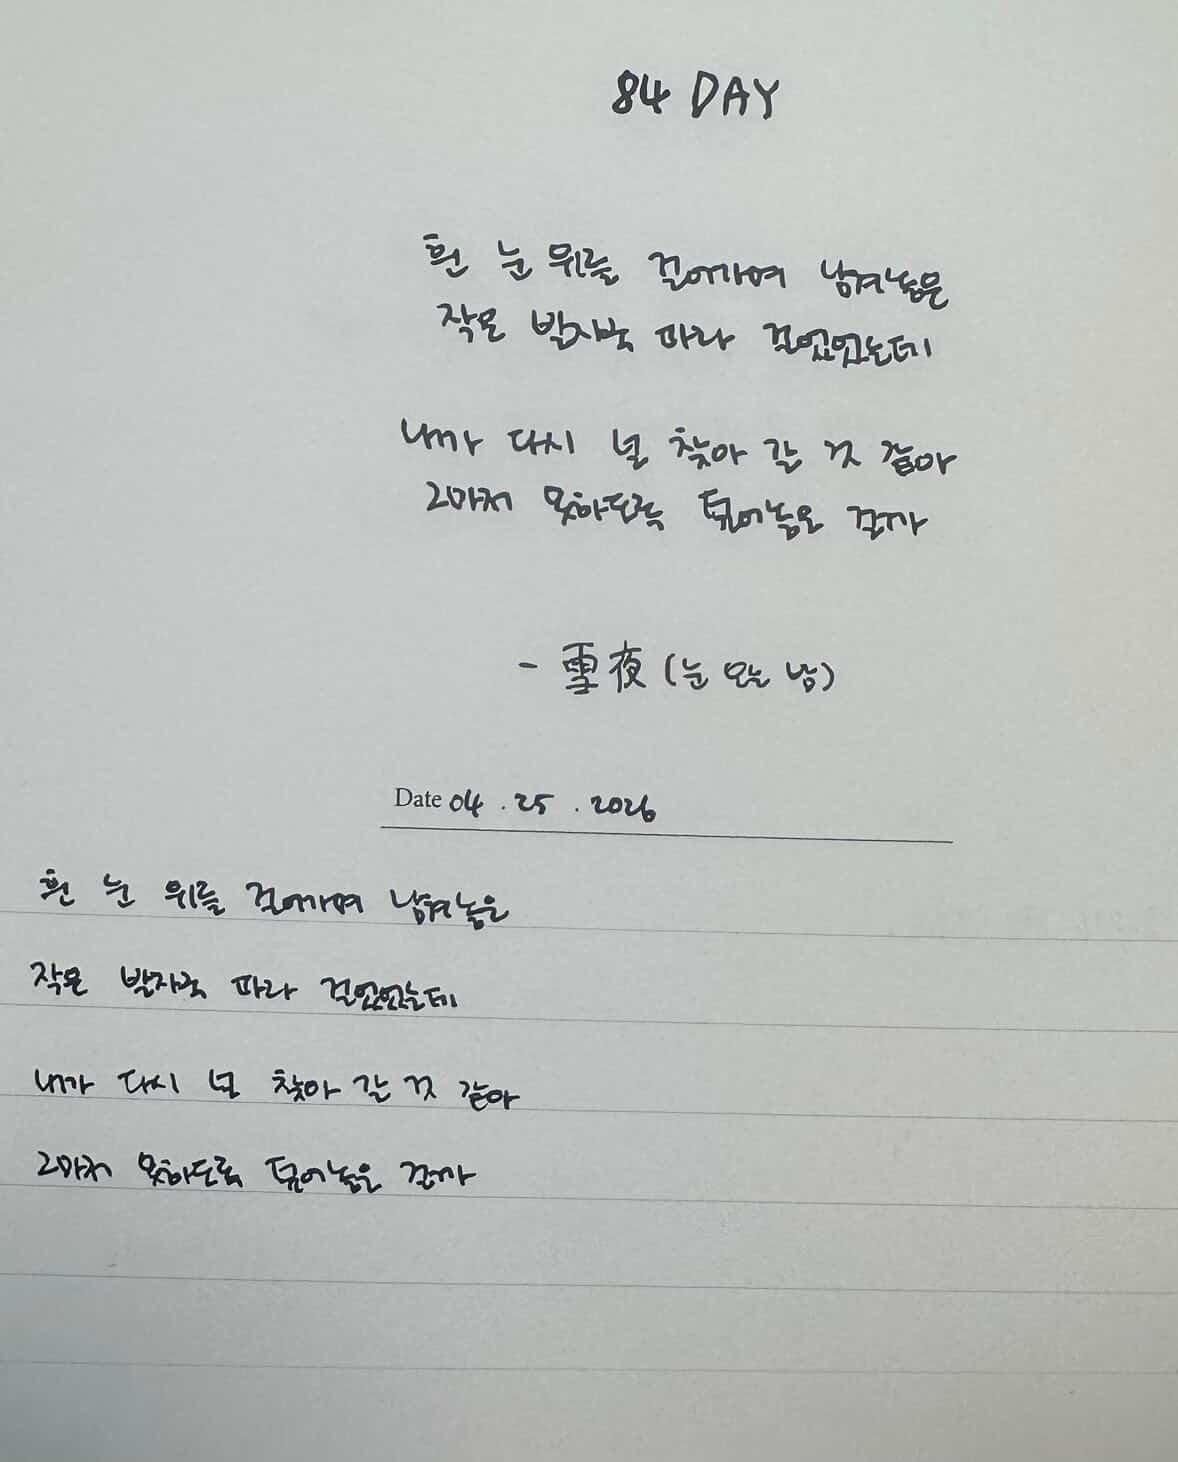 84 DAY
흰 눈 위를 걸어가며 남겨놓은
작은 발자국 따라 걸었었는데
내가 다시 널 찾아 갈 것 같아
그마저 못하도록 덮어놓은 걸까
- 雪夜 (눈 오는 밤)
Date 04 . 25 . 2026
흰 눈 위를 걸어가며 남겨놓은
작은 발자국 따라 걸었었는데
내가 다시 널 찾아 갈 것 같아
그마저 못하도록 덮어놓은 걸까